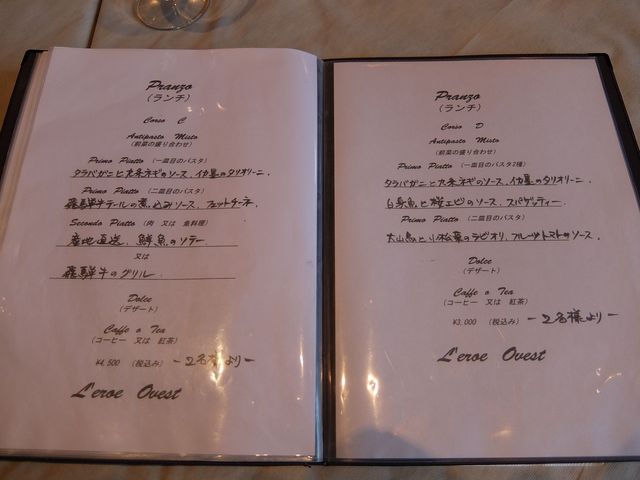 Pranzo
(ランチ)
Corso C
Antipasto Misto
(前菜の盛り合わせ)
Primo Piatto (一皿目のパスタ)
タラバガニと九条ネギのソース、イカ墨のタリオリーニ、
Primo Piatto (二皿目のパスタ)
飛騨牛テールの煮込みソース、フェットチーネ、
Secondo Piatto (肉 又は 魚料理)
産地直送、鮮魚のソテー
又は
飛騨牛のグリル、
Dolce
(デザート)
Caffe o Tea
(コーヒー 又は 紅茶)
¥4,500 (税込み) ー2名様よりー
L'eroe Ovest
Pranzo
(ランチ)
Corso D
Antipasto Misto
(前菜の盛り合わせ)
Primo Piatto (一皿目のパスタ2種)
タラバガニと九条ネギのソース、イカ墨のタリオリーニ、
白身魚と桜エビのソース、スパゲッティー、
Primo Piatto (二皿目のパスタ)
大山鳥と小松菜のラビオリ、フルーツトマトのソース、
Dolce
(デザート)
Caffe o Tea
(コーヒー 又は 紅茶)
¥3,000 (税込み) ー2名様よりー
L'eroe Ovest